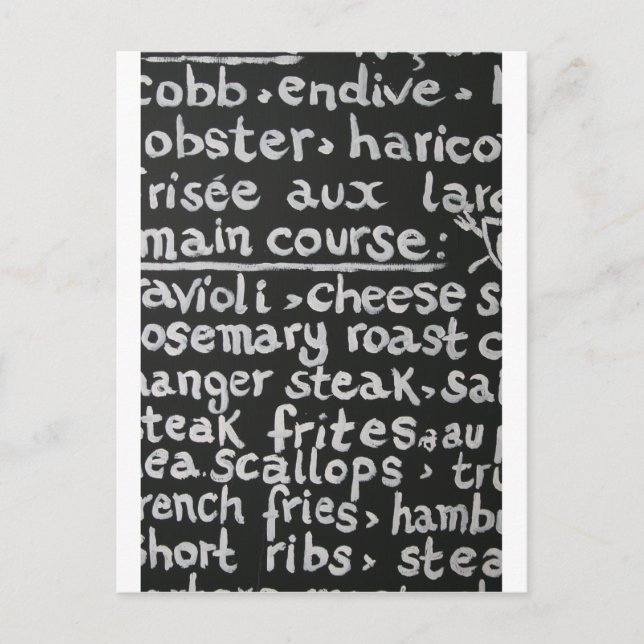 cobb, endive,
lobster, harico
frisée aux lard
main course:
ravioli, cheese s
rosemary roast c
hanger steak, sal
steak frites, au p
sea scallops, tru
french fries, hambu
short ribs, stea